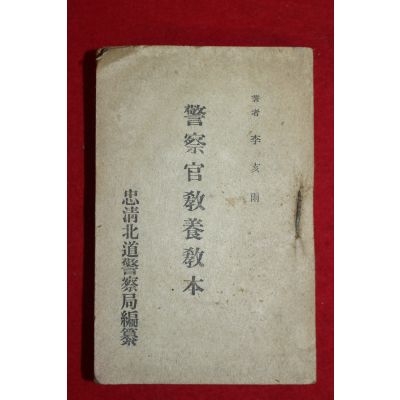 著者 李亥雨
警察官敎養敎本
忠清北道警察局編纂